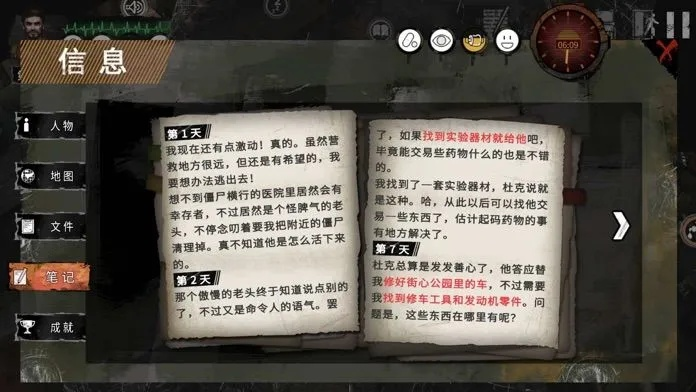 06:09
信息
人物
地图
文件
笔记
成就
第1天
我现在还有点激动！真的。虽然营
救地方很远，但还是有希望的，我
要想办法逃出去！
想不到僵尸横行的医院里居然会有
幸存者，不过居然是个怪脾气的老
头，不停念叨着要我把附近的僵尸
清理掉。真不知道他是怎么活下来
的。
第2天
那个傲慢的老头终于知道说点别的
了，不过又是命令人的语气。罢
了，如果找到实验器材就给他吧，
毕竟能交易些药物什么的也是不错
的。
我找到了一套实验器材，杜克说就
是这种。哈，从此以后可以找他交
易一些东西了，估计起码药物的事
有地方解决了。
第7天
杜克总算是发发善心了，他答应替
我修好街心公园里的车，不过需要
我找到修车工具和发动机零件。问
题是，这些东西在哪里有呢？